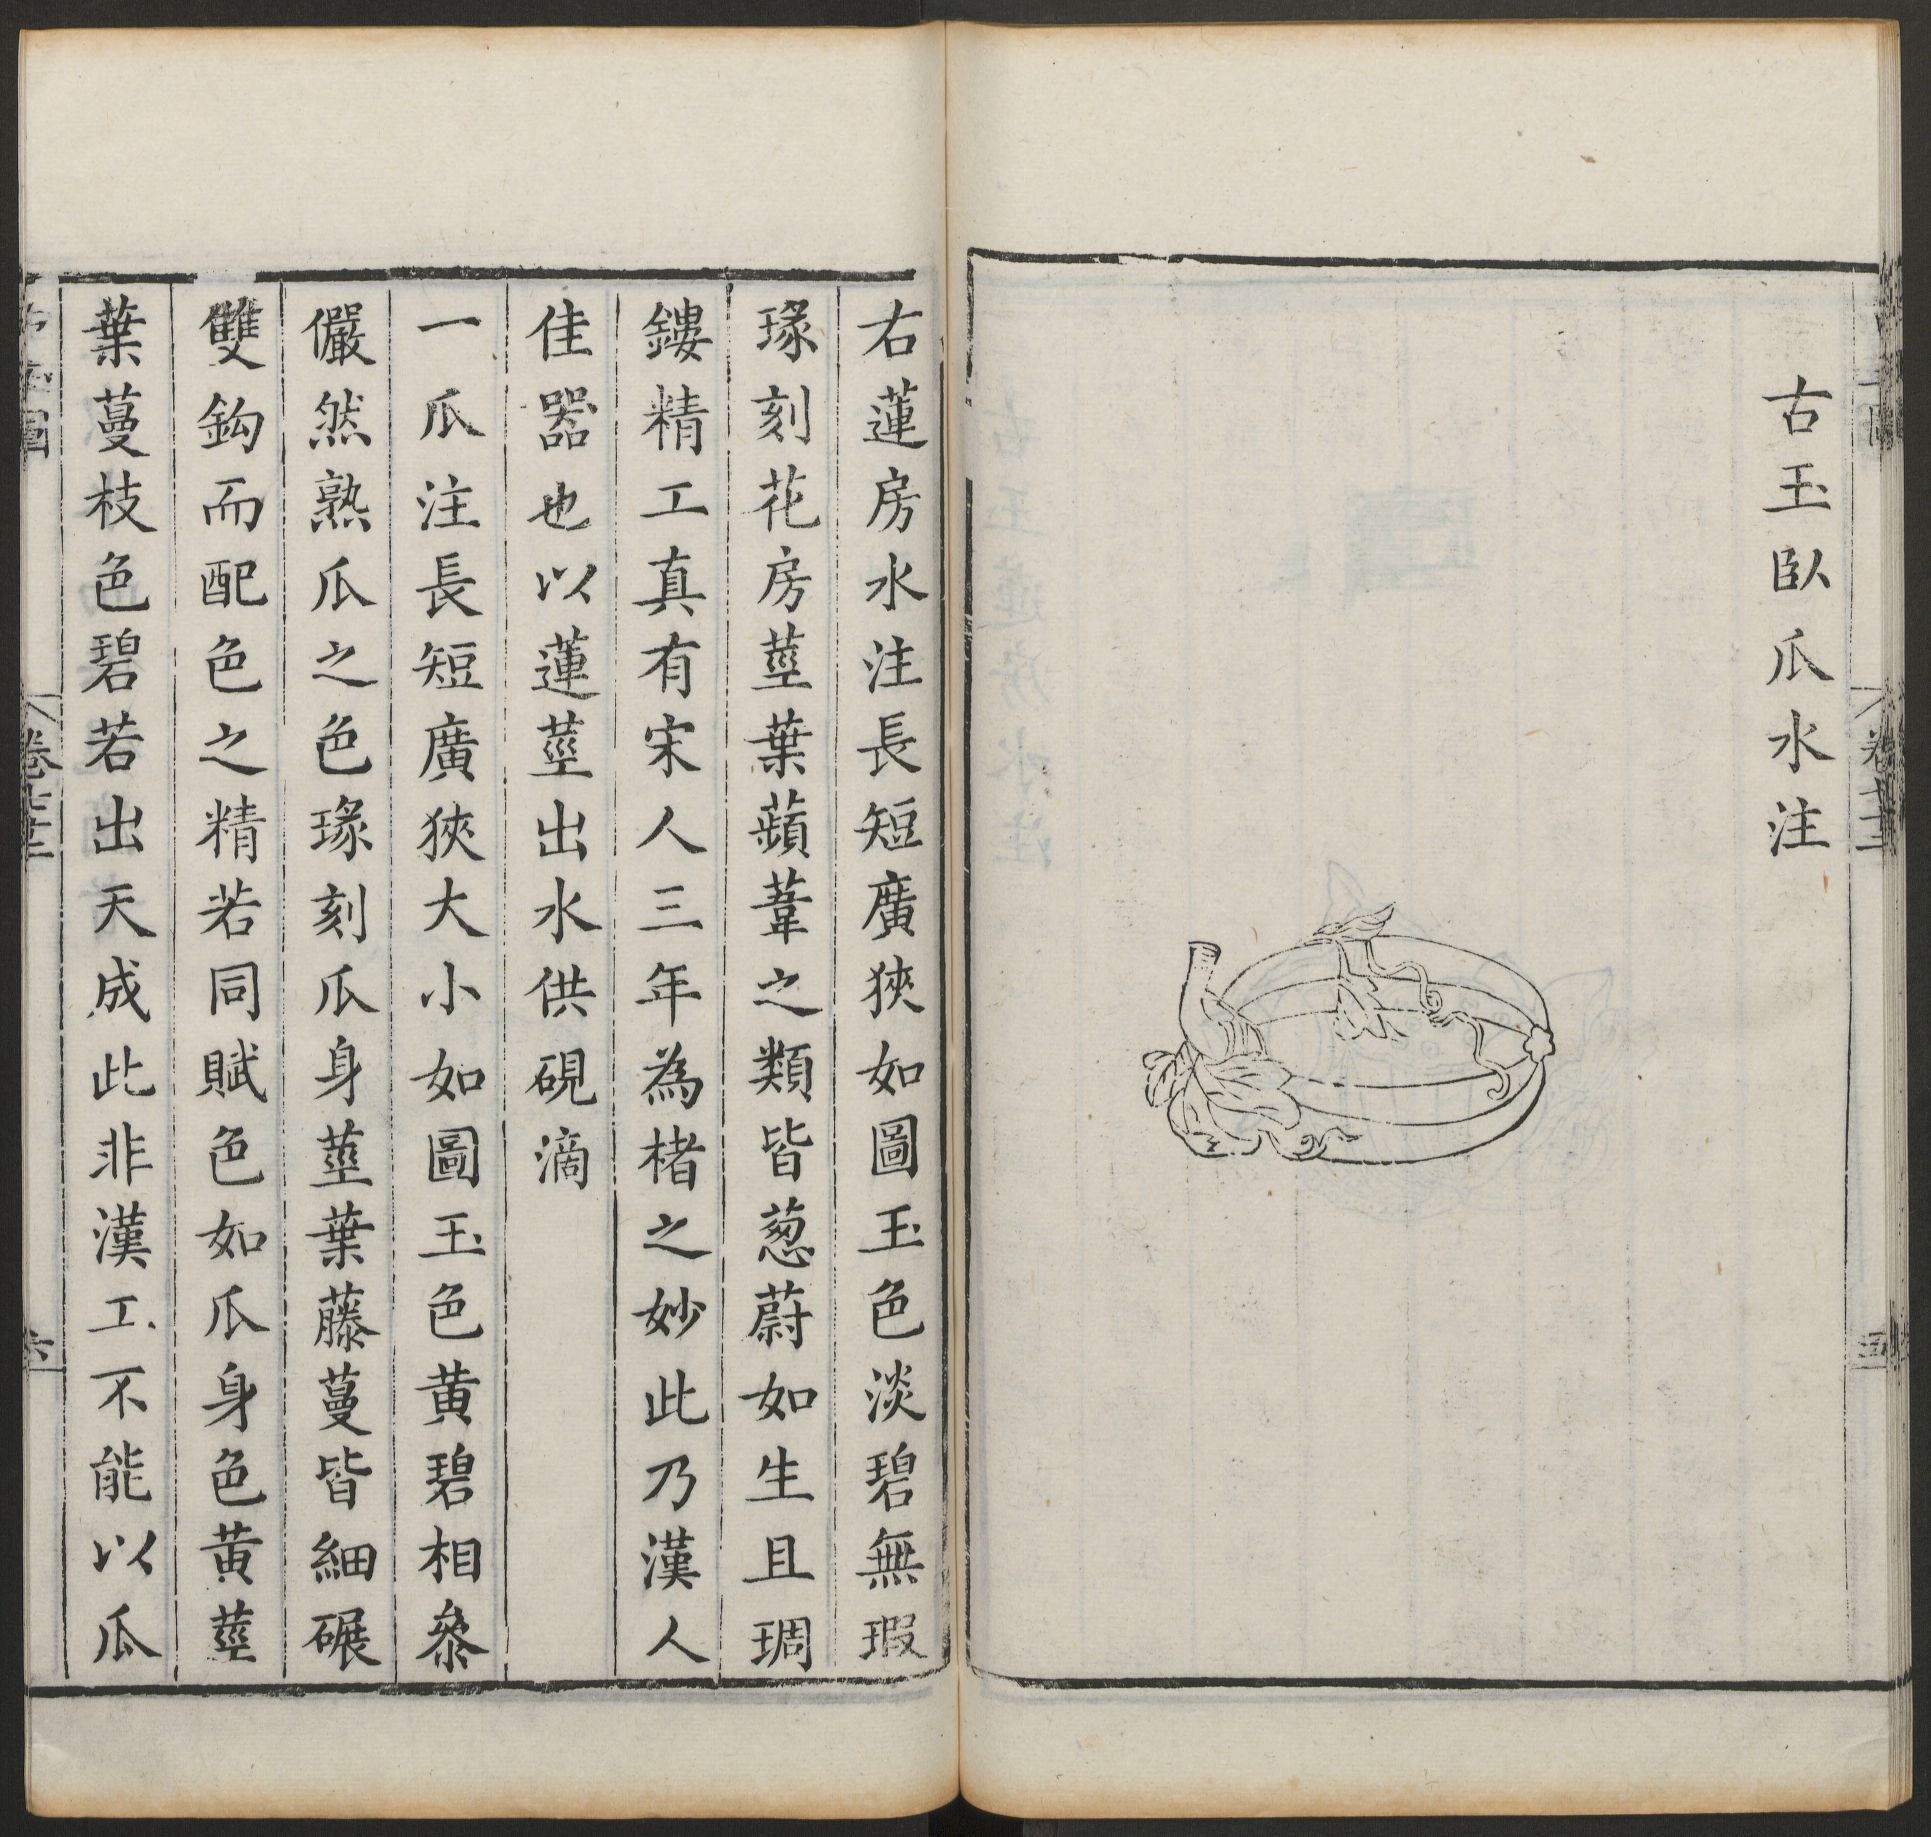 古玉臥瓜水注
五
右蓮房水注長短廣狹如圖玉色淡碧無瑕
瑑刻花房莖葉蘋葦之類皆葱蔚如生且琱
鏤精工真有宋人三年為楮之妙此乃漢人
佳器也以蓮莖出水供硯滴
一瓜注長短廣狹大小如圖玉色黃碧相叅
儼然熟瓜之色瑑刻瓜身莖葉藤蔓皆細碾
雙鈎而配色之精若同賦色如瓜身色黃莖
葉蔓枝色碧若出天成此非漢工不能以瓜
六